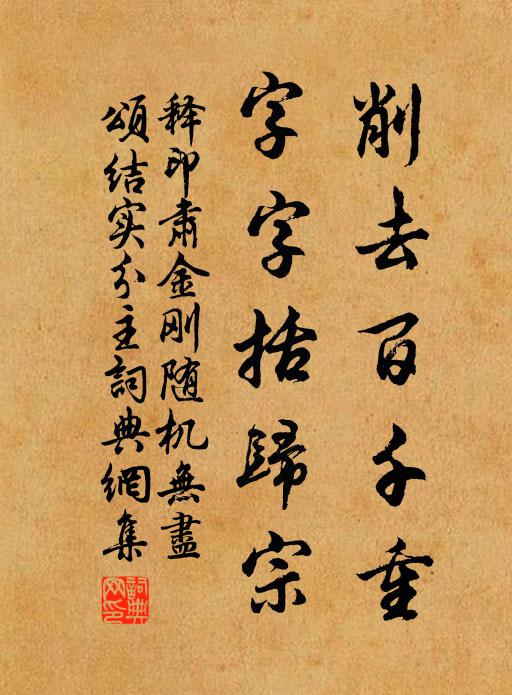 削去百千重
字字括歸宗
释印肅金刚随机無盡
頌结实分主詞典網集
詞典網印